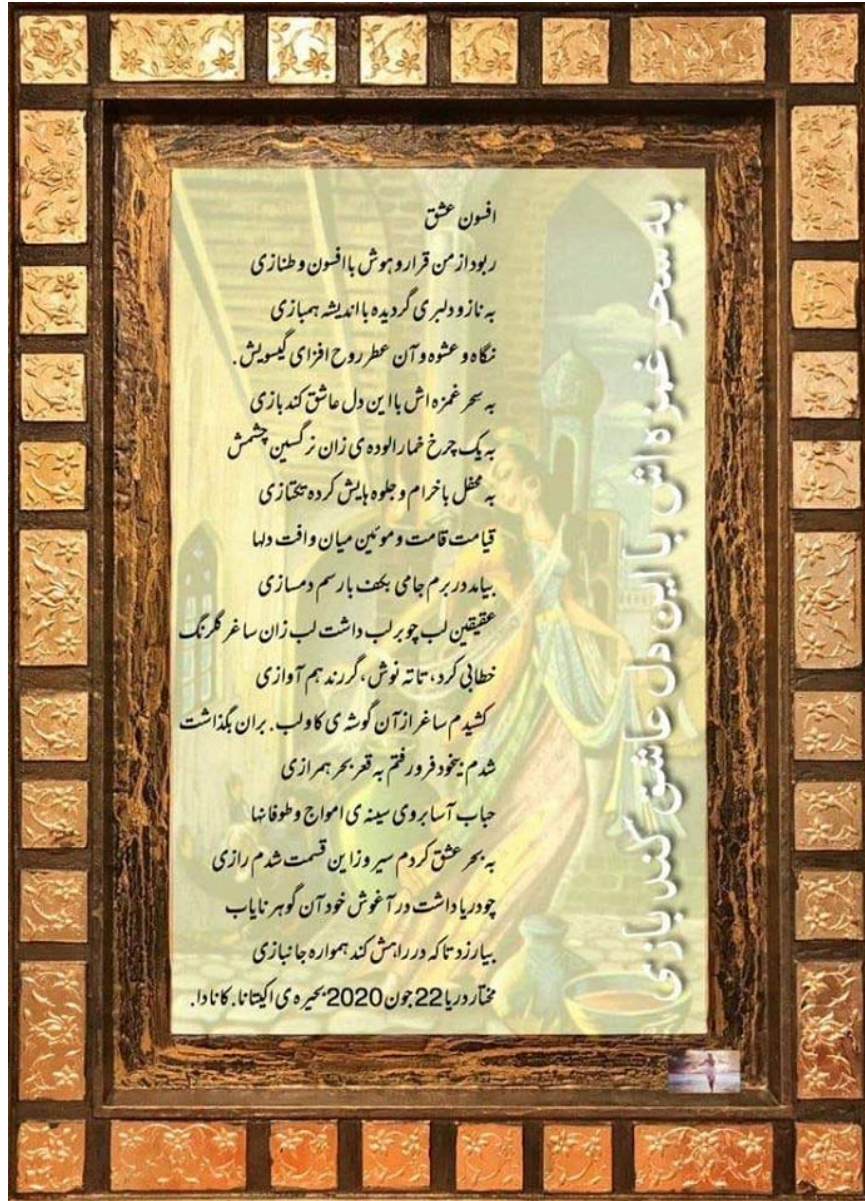 افسون عشق
ربود از من قرار و هوش با افسون و طنازی
به ناز و دلبری گردیده با اندیشه همبازی
نگاه و عشوه و آن عطر روح افزای گیسویش.
به سحر غمزه اش با این دل عاشق کند بازی
به یک چرخ خمار الوده ی زان نرگسین چشمش
به محفل با خرام و جلوه هایش کرده یکتازی
قیامت قامت و موئین میان و افت دلها
بیامد در برم جامی بکف با رسم دمسازی
عقیقین لب چو بر لب داشت لب زان ساغر گلرنگ
خطابی کرد، تا ته نوش، گر رند هم آوازی
کشیدم ساغر از آن گوشه ی کاو لب. بران بگذاشت
شدم بیخود فرو رفتم به قعر بحر همرازی
حباب آسا بروی سینه ی امواج و طوفانها
به بحر عشق کردم سیر وزاین قسمت شدم رازی
چو دریا داشت در آغوش خود آن گوهر نایاب
بیارزد تا که در راهش کند همواره جانبازی
مختار دریا 22 جون 2020 بحیره ی اکیتانا. کانادا.
به سحر غمزه اش با این دل عاشق کند بازی